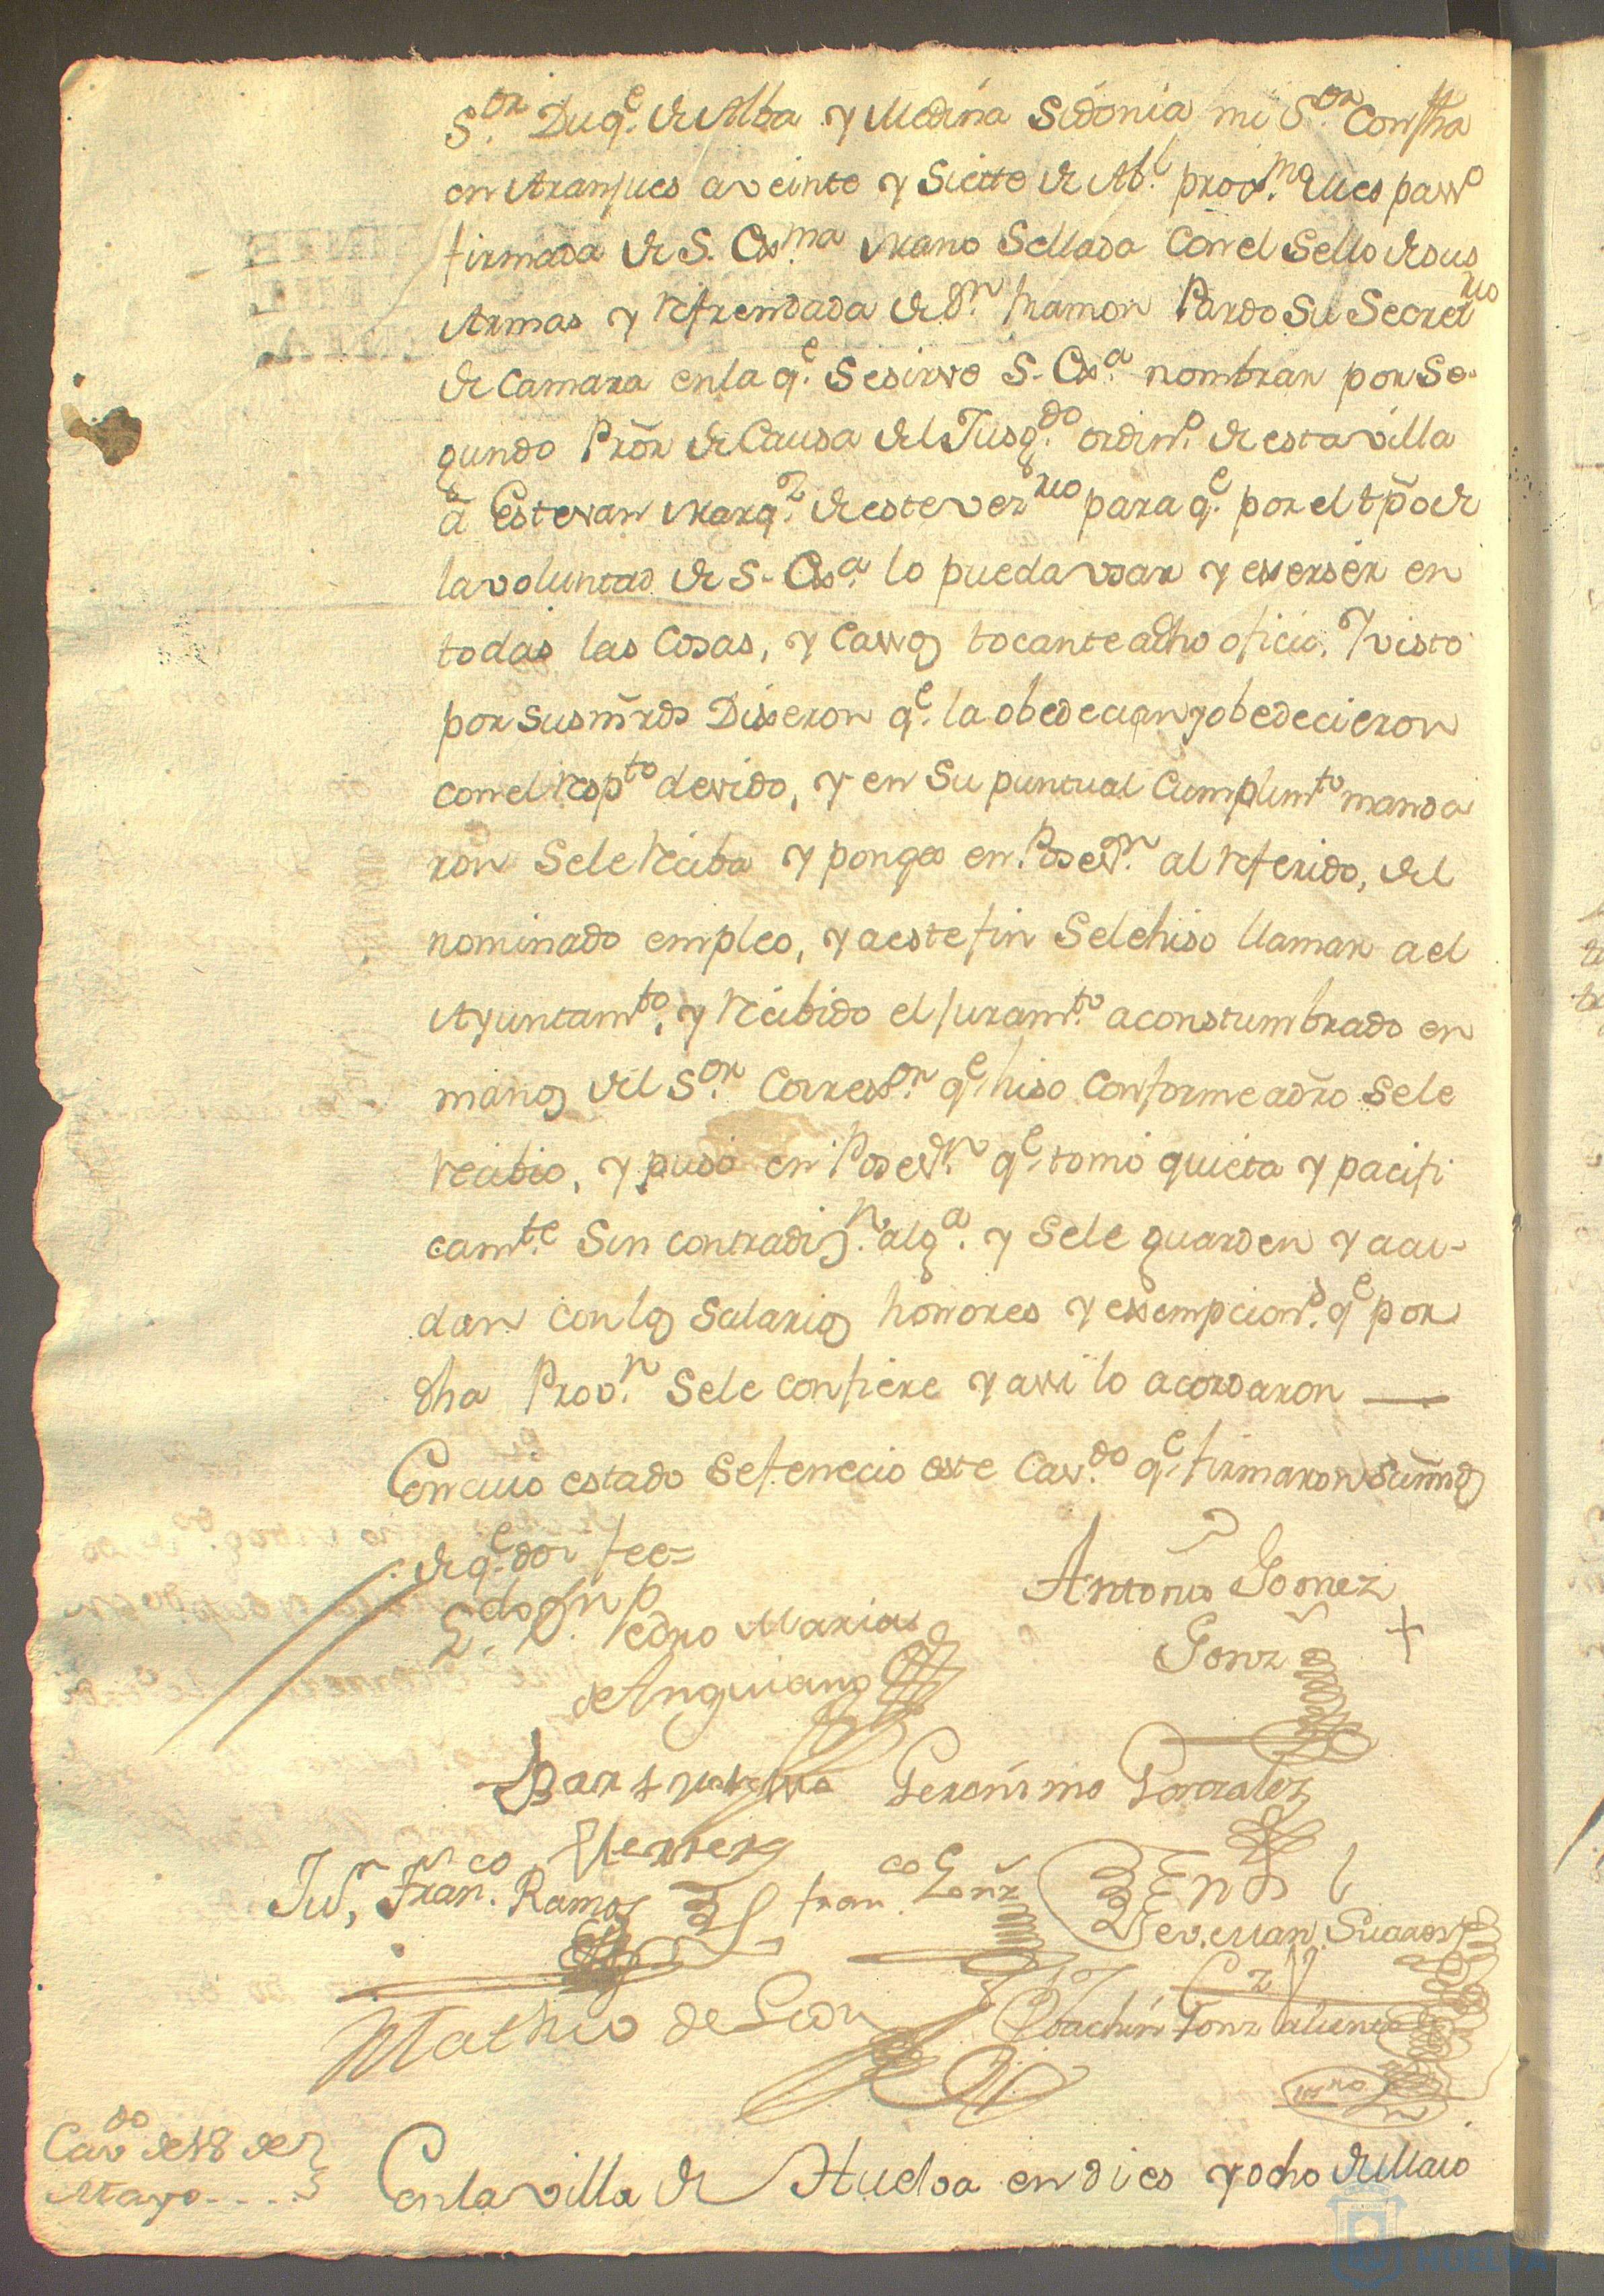 S.or Duq.e de Alba y Medina Sidonia mi S.or Con fha
en Aranjues a veinte y Siette de Ab.l prox.mo Mes pass.o
firmada de S. Ex.ma mano Sellada con el Sello de sus
Armas y refrendada de D.n Ramon Pardo Su Secret.rio
de Camara en la q.e Se sirve S. Ex.a nombrar por Se-
gundo Prõr de Causa del Jusg.do ordin.o de esta villa
à Estevan Marq.z de este vez.rio para q.e por el tpõ de
la voluntad de S. Ex.a lo pueda vsar y exerser en
todas las Cosas, y Cassos tocante a dho oficio. Y visto
por sus mrds Dixeron q.e la obedecian y obedecieron
con el resp.to devido, y en Su puntual Cumplim.to manda
ron Se le reciba y ponga en Poses.n al referido, del
nominado empleo, y a este fin Se le hiso llamar a el
Ayuntam.to, y recibido el juram.to aconstumbrado en
manos del S.or Corres.or q.e hiso Conforme a dro Se le
recibio, y puso en Poses.n q.e tomó quieta y pacifi
cam.te Sin contradiz.n alg.a y Se le guarden y acu-
dan con los Salarios honores y exsempcion.s q.e por
dha Prov.n Se le confiere y assi lo acordaron —
En cuio estado Se fenecio este Cav.do q.e firmaron Sus mrds
de q.e doi fee=
L.do D.n Pedro Maria
de Anguiano
Antonio Gomez
Gonz +
Geronimo Gonzalez
Herrera
Ju.n Fran.co Ramos
Fran.co Gonz
Estevan Suarez
Mathio de Leon
Joachin Gonz
Cav.do de 18 de
Mayo....
En la villa de Huelva en dies y ocho de Maio
HUELVA